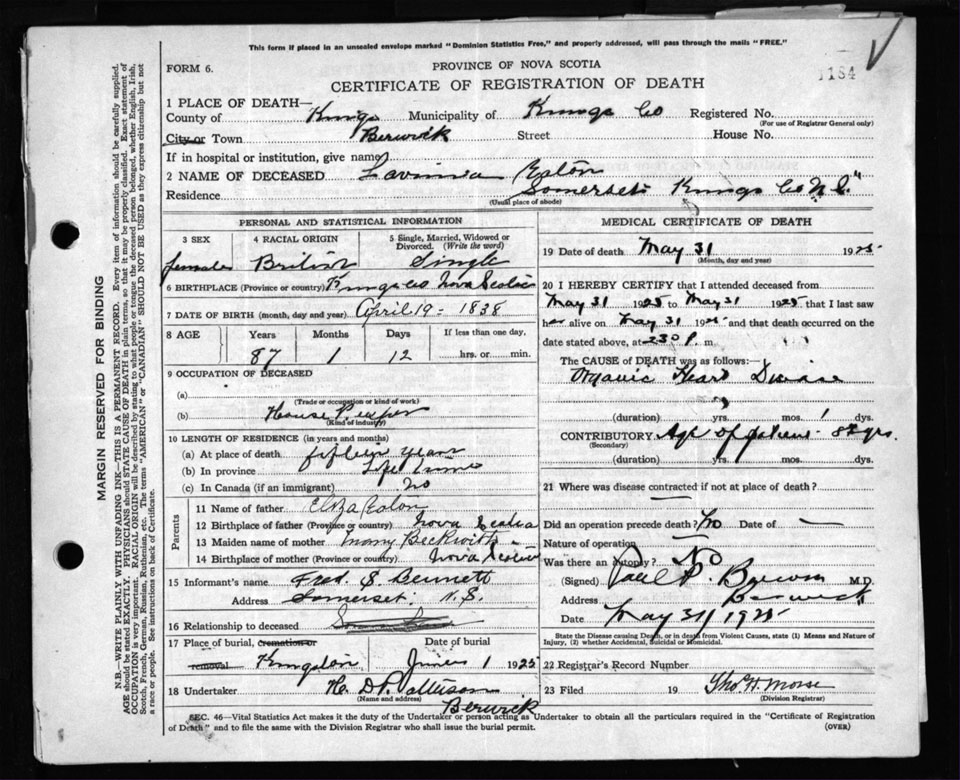 This form if placed in an unsealed envelope marked "Dominion Statistics Free," and properly addressed, will pass through the mails "FREE."
FORM 6.
PROVINCE OF NOVA SCOTIA
1184
CERTIFICATE OF REGISTRATION OF DEATH
1 PLACE OF DEATH—
County of Kings Municipality of Kings Co Registered No.
(For use of Registrar General only)
City or Town Berwick Street House No.
If in hospital or institution, give name
2 NAME OF DECEASED Lavinia Eaton
Residence Somerset Kings Co N.S.
(Usual place of abode)
PERSONAL AND STATISTICAL INFORMATION
3 SEX 4 RACIAL ORIGIN 5 Single, Married, Widowed or Divorced. (Write the word)
female British Single
6 BIRTHPLACE (Province or country) Kings Co Nova Scotia
7 DATE OF BIRTH (month, day and year) April 19 = 1838
8 AGE Years Months Days If less than one day,
87 1 12 hrs. or min.
9 OCCUPATION OF DECEASED
(a)
(Trade or occupation or kind of work)
(b) House Keeper
(Kind of industry)
10 LENGTH OF RESIDENCE (in years and months)
(a) At place of death fifteen years
(b) In province Life time
(c) In Canada (if an immigrant) no
Parents
11 Name of father Eaton
12 Birthplace of father (Province or country) Nova Scotia
13 Maiden name of mother Beckwith
14 Birthplace of mother (Province or country) Nova Scotia
15 Informant's name Fred. S. Bennett
Address Somerset: N.S.
16 Relationship to deceased
17 Place of burial, cremation or removal Kingston Date of burial June 1 1925
18 Undertaker Berwick
(Name and address)
MEDICAL CERTIFICATE OF DEATH
19 Date of death May 31 1925
(Month, day and year)
20 I HEREBY CERTIFY that I attended deceased from
May 31 1925 to May 31 1925 that I last saw
her alive on May 31 1925 and that death occurred on the
date stated above, at 230 P m.
The CAUSE OF DEATH was as follows:
Organic Heart Disease
(duration) yrs. mos. 1 dys.
CONTRIBUTORY. Age of patient 87 yrs.
(Secondary)
(duration) yrs. mos. dys.
21 Where was disease contracted if not at place of death?
Did an operation precede death? No Date of —
Nature of operation —
Was there an autopsy? No
(Signed) M.D.
Address Berwick
Date May 31 1925
State the Disease causing Death, or in death from Violent Causes, state (1) Means and Nature of
Injury, (2) whether Accidental, Suicidal or Homicidal.
22 Registrar's Record Number
23 Filed 19 Thos H Morse
(Division Registrar)
SEC. 46—Vital Statistics Act makes it the duty of the Undertaker or person acting as Undertaker to obtain all the particulars required in the "Certificate of Registration
of Death" and to file the same with the Division Registrar who shall issue the burial permit. (OVER)
MARGIN RESERVED FOR BINDING
N.B.—WRITE PLAINLY WITH UNFADING INK—THIS IS A PERMANENT RECORD. Every item of information should be carefully supplied.
AGE should be stated EXACTLY. PHYSICIANS should STATE CAUSE OF DEATH in plain terms, so that it may be properly classified. Exact statement of
OCCUPATION is very important. RACIAL ORIGIN will be described by stating to what people or tongue the deceased person belonged, whether English, Irish,
Scotch, French, German, Russian, Ruthenian, etc. The terms "AMERICAN" or "CANADIAN" SHOULD NOT BE USED as they express citizenship but not
a race or people. See instructions on back of Certificate.